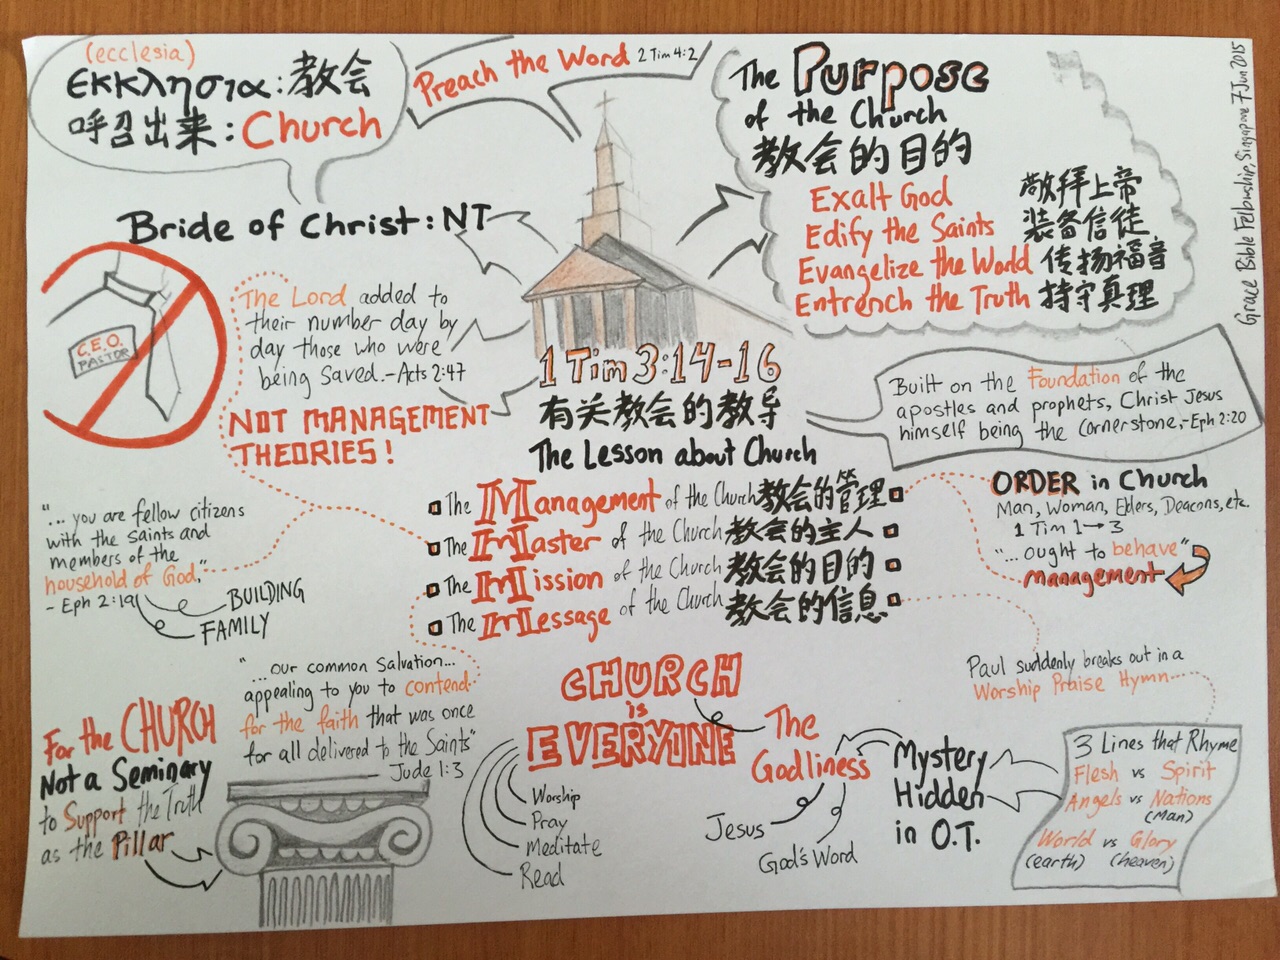 (ecclesia)
εκκλησια: 教会
呼召出来: Church
Preach the Word 2 Tim 4:2
The Purpose
of the Church
教会的目的
Exalt God 敬拜上帝
Edify the Saints 装备信徒
Evangelize the World 传扬福音
Entrench the Truth 持守真理
Grace Bible Fellowship, Singapore 7 Jun 2015
Bride of Christ: NT
C.E.O.
PASTOR
The Lord added to
their number day by
day those who were
being saved.-Acts 2:47
NOT MANAGEMENT
THEORIES!
1 Tim 3:14-16
有关教会的教导
The Lesson about Church
Built on the Foundation of the
apostles and prophets, Christ Jesus
himself being the cornerstone,-Eph 2:20
The Management of the Church 教会的管理
The Master of the Church 教会的主人
The Mission of the Church 教会的目的
The Message of the Church 教会的信息
ORDER in Church
Man, Woman, Elders, Deacons, etc.
1 Tim 1→3
"...ought to behave"
management
"... you are fellow citizens
with the saints and
members of the
household of God,"
- Eph 2:19
BUILDING
FAMILY
"... our common salvation...
appealing to you to contend
for the faith that was once
for all delivered to the Saints"
- Jude 1:3
For the CHURCH
Not a Seminary
to Support the Truth
as the Pillar
CHURCH
is
EVERYONE
Worship
Pray
Meditate
Read
The
Godliness
Jesus
God's Word
Mystery
Hidden
in O.T.
Paul suddenly breaks out in a
Worship Praise Hymn
3 Lines that Rhyme
Flesh vs Spirit
Angels vs Nations
(Man)
World vs Glory
(earth) (heaven)